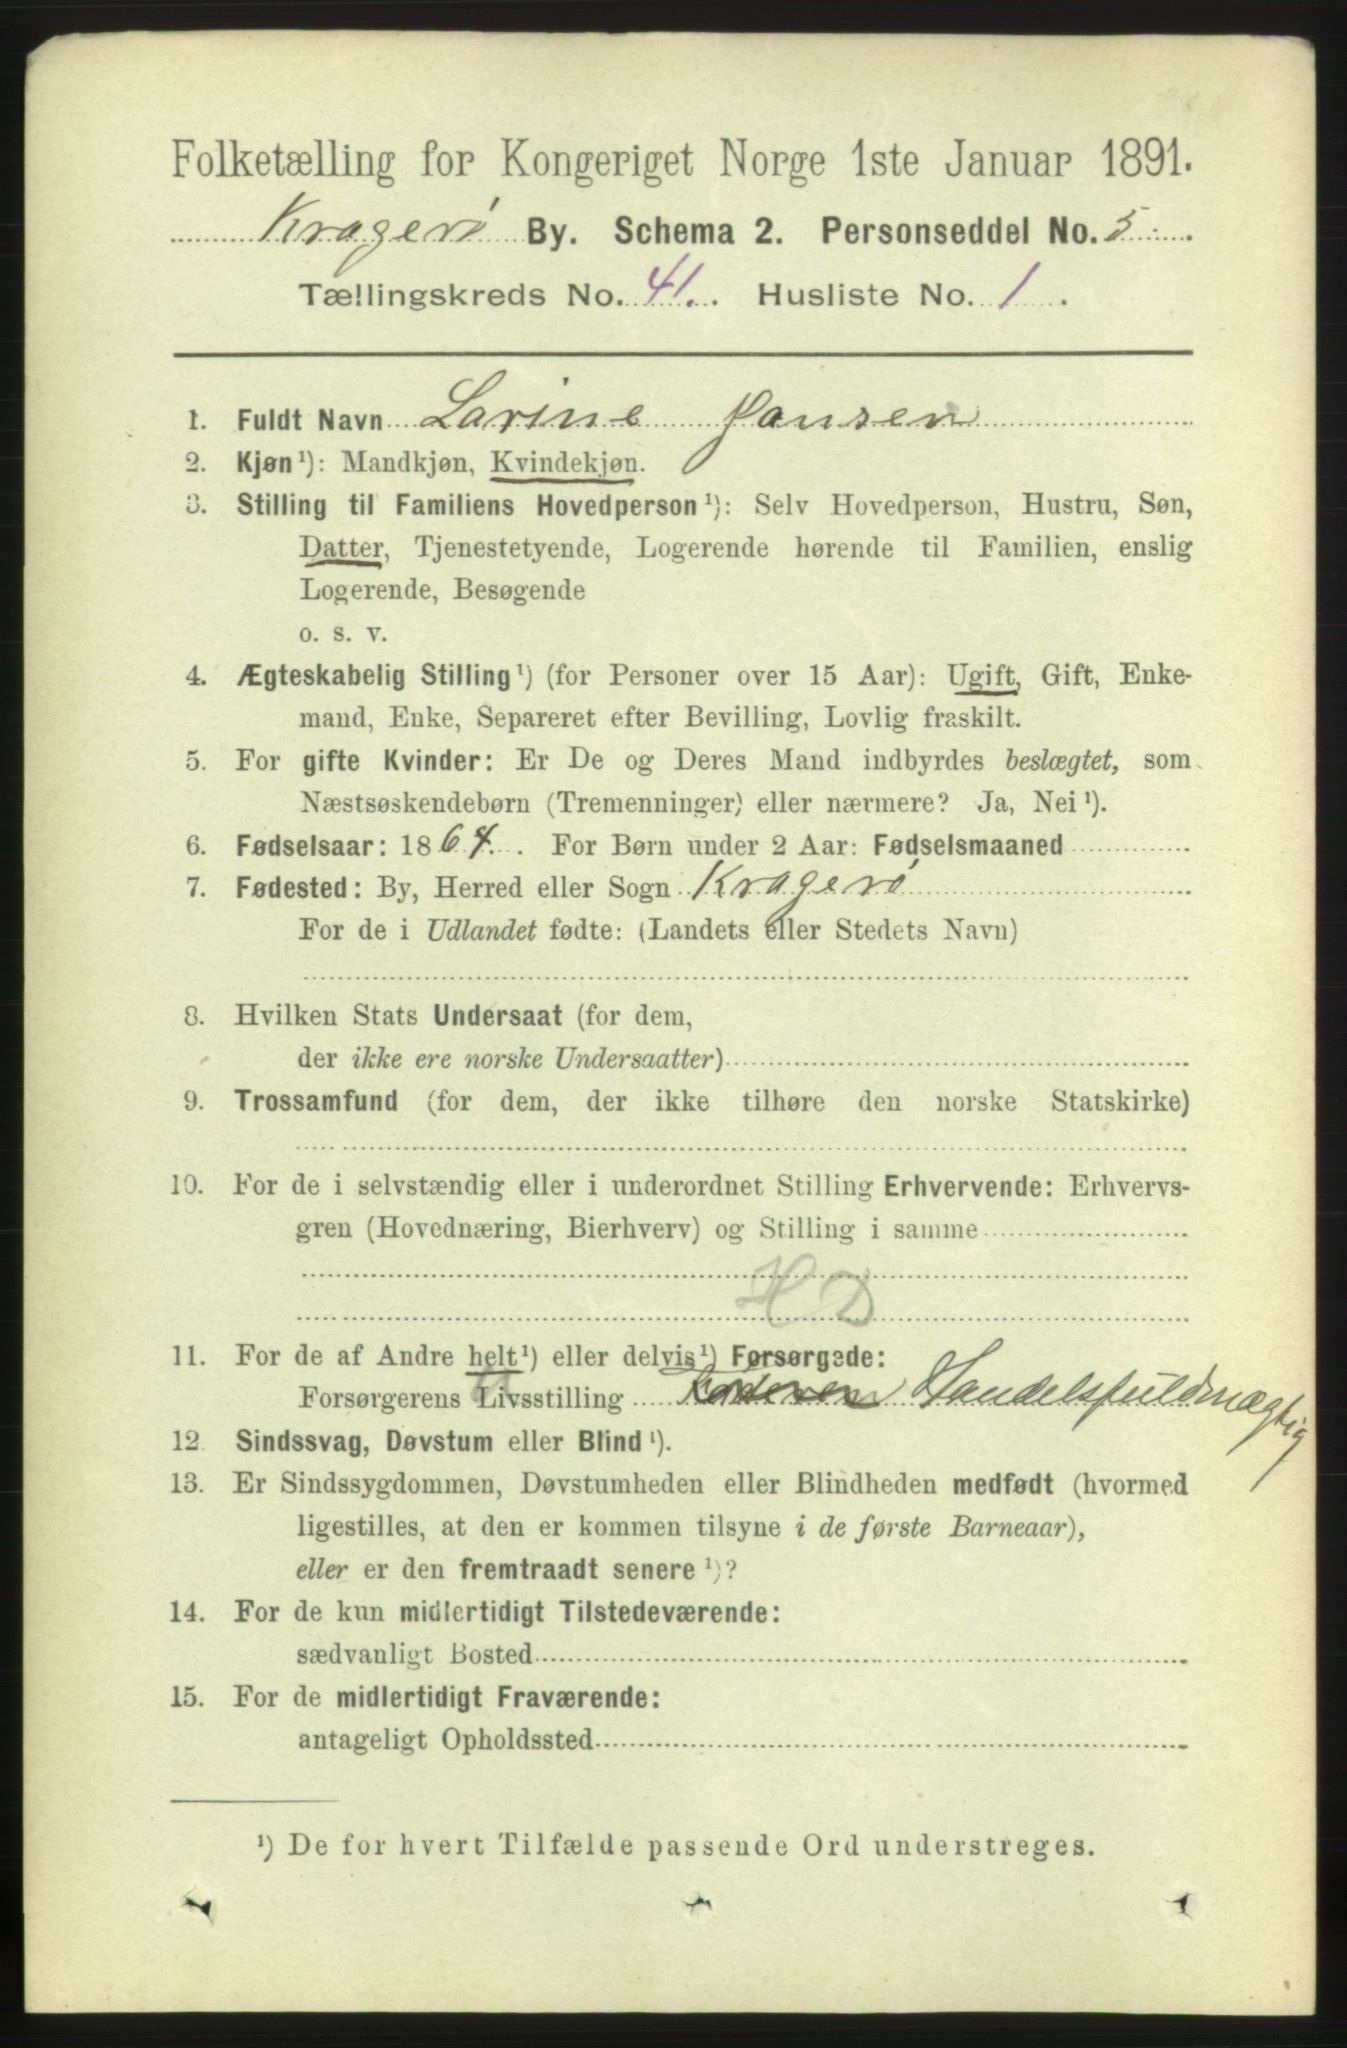 Folketælling for Kongeriget Norge 1ste Januar 1891.
Kragerø By. Schema 2. Personseddel No. 5
Tællingskreds No. 41. Husliste No. 1.
1. Fuldt Navn Larine Jansen
2. Kjøn ¹): Mandkjøn, Kvindekjøn.
3. Stilling til Familiens Hovedperson ¹): Selv Hovedperson, Hustru, Søn,
Datter, Tjenestetyende, Logerende hørende til Familien, enslig
Logerende, Besøgende
o. s. v.
4. Ægteskabelig Stilling ¹) (for Personer over 15 Aar): Ugift, Gift, Enke-
mand, Enke, Separeret efter Bevilling, Lovlig fraskilt.
5. For gifte Kvinder: Er De og Deres Mand indbyrdes beslægtet, som
Næstsøskendebørn (Tremenninger) eller nærmere? Ja, Nei ¹).
6. Fødselsaar: 1864. For Børn under 2 Aar: Fødselsmaaned
7. Fødested: By, Herred eller Sogn Kragerø
For de i Udlandet fødte: (Landets eller Stedets Navn)
8. Hvilken Stats Undersaat (for dem,
der ikke ere norske Undersaatter)
9. Trossamfund (for dem, der ikke tilhøre den norske Statskirke)
10. For de i selvstændig eller i underordnet Stilling Erhvervende: Erhvervs-
gren (Hovednæring, Bierhverv) og Stilling i samme
H D
11. For de af Andre helt ¹) eller delvis ¹) Forsørgede:
Forsørgerens Livsstilling Handelsfuldmægtig
12. Sindssvag, Døvstum eller Blind ¹).
13. Er Sindssygdommen, Døvstumheden eller Blindheden medfødt (hvormed
ligestilles, at den er kommen tilsyne i de første Barneaar),
eller er den fremtraadt senere ¹)?
14. For de kun midlertidigt Tilstedeværende:
sædvanligt Bosted
15. For de midlertidigt Fraværende:
antageligt Opholdssted
¹) De for hvert Tilfælde passende Ord understreges.